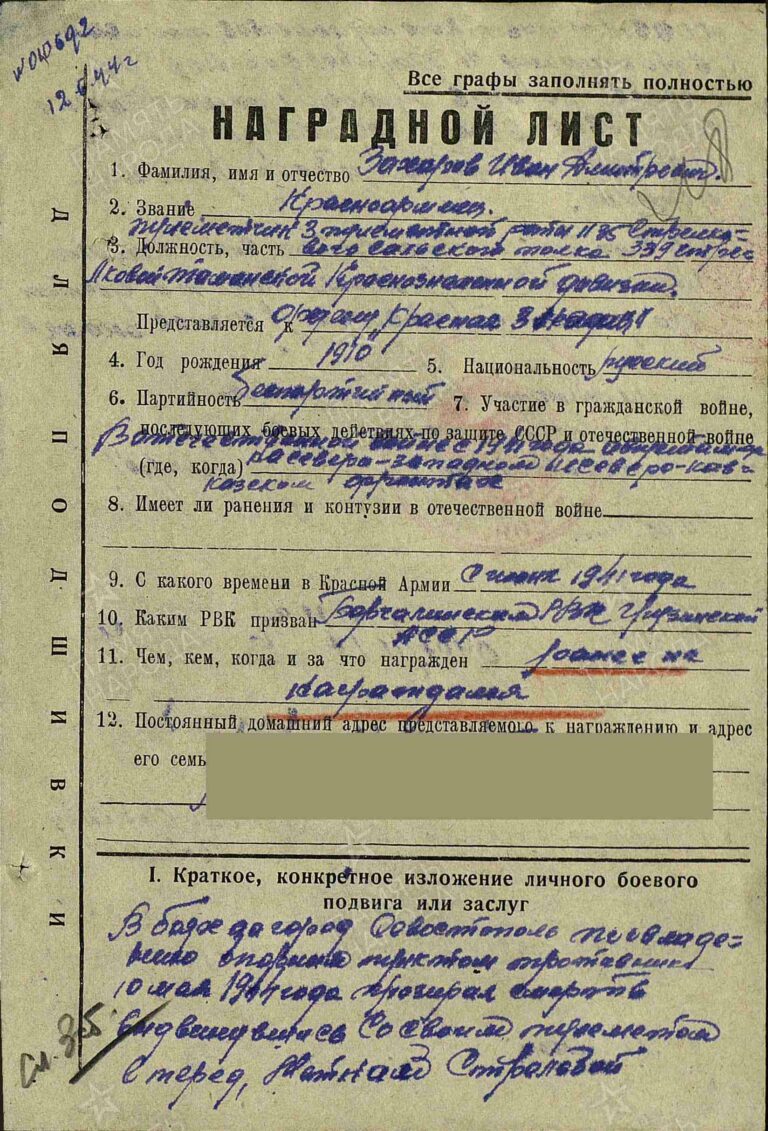 12 6 44 г
Все графы заполнять полностью
НАГРАДНОЙ ЛИСТ
1. Фамилия, имя и отчество Захаров Иван Дмитреевич.
2. Звание Красноармеец.
пулеметчик 3 пулеметной роты
3. Должность, часть полка 339 стрел
ковой Таманской Краснознаменной дивизии.
Представляется к ордену „Красная Звезда"
4. Год рождения 1910 5. Национальность русский
6. Партийность беспартийный 7. Участие в гражданской войне,
последующих боевых действиях по защите СССР и отечественной войне
В отечественной войне с 1941 года
(где, когда) на северо-западном и северо-кав-
казском фронтах
8. Имеет ли ранения и контузии в отечественной войне
9. С какого времени в Красной Армии С июня 1941 года
10. Каким РВК призван Борчалинским РВК Грузинской
ССР
11. Чем, кем, когда и за что награжден ранее не
награждался
12. Постоянный домашний адрес представляемого к награждению и адрес
его семь
I. Краткое, конкретное изложение личного боевого
подвига или заслуг
В боях за город Севостополь по овладе-
нию опорным пунктом противника
10 мая 1944 года презирая смерть
выдвинувшись со своим пулеметом
в перед,
См. З-б.
ДЛЯ ПОДШИВКИ
ПАМЯТЬ НАРОДА